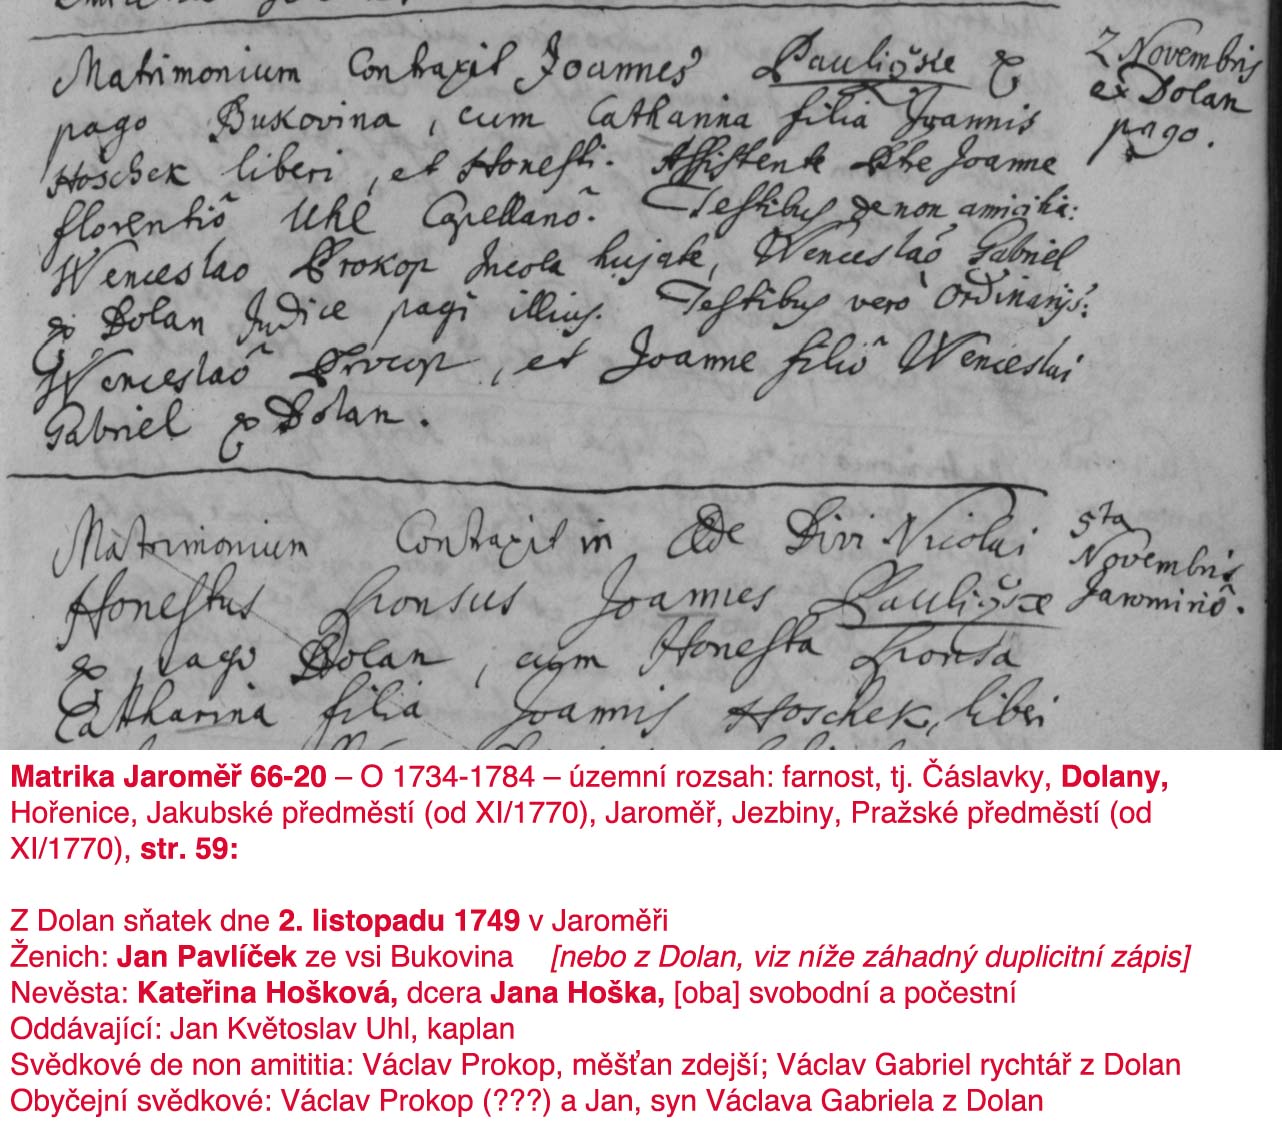 Matrimonium Contraxit Joannes Pauliczke ex
pago Bukovina, cum Catharina filia Joannis
Hoschek liberi, et Honesti. Assistente Pte Joanne
florentio Uhl Capellano. Testibus de non amicitia:
Wenceslao Prokop Incola hujate, Wenceslao Gabriel
ex Dolan Judice pagi illius. Testibus vero Ordinarijs:
Wenceslao Procop, et Joanne filio Wenceslai
Gabriel ex Dolan.
2 Novembris
ex Dolan
pago.
Matrimonium Contraxit in Æde Divi Nicolai
Honestus Sponsus Joannes Pauliczke
ex pago Dolan, cum Honesta Sponsa
Catharina filia Joannis Hoschek, liberi
5ta
Novembris
Jaromirio.
Matrika Jaroměř 66-20 – O 1734-1784 – územní rozsah: farnost, tj. Čáslavky, Dolany,
Hořenice, Jakubské předměstí (od XI/1770), Jaroměř, Jezbiny, Pražské předměstí (od
XI/1770), str. 59:
Z Dolan sňatek dne 2. listopadu 1749 v Jaroměři
Ženich: Jan Pavlíček ze vsi Bukovina [nebo z Dolan, viz níže záhadný duplicitní zápis]
Nevěsta: Kateřina Hošková, dcera Jana Hoška, [oba] svobodní a počestní
Oddávající: Jan Květoslav Uhl, kaplan
Svědkové de non amititia: Václav Prokop, měšťan zdejší; Václav Gabriel rychtář z Dolan
Obyčejní svědkové: Václav Prokop (???) a Jan, syn Václava Gabriela z Dolan